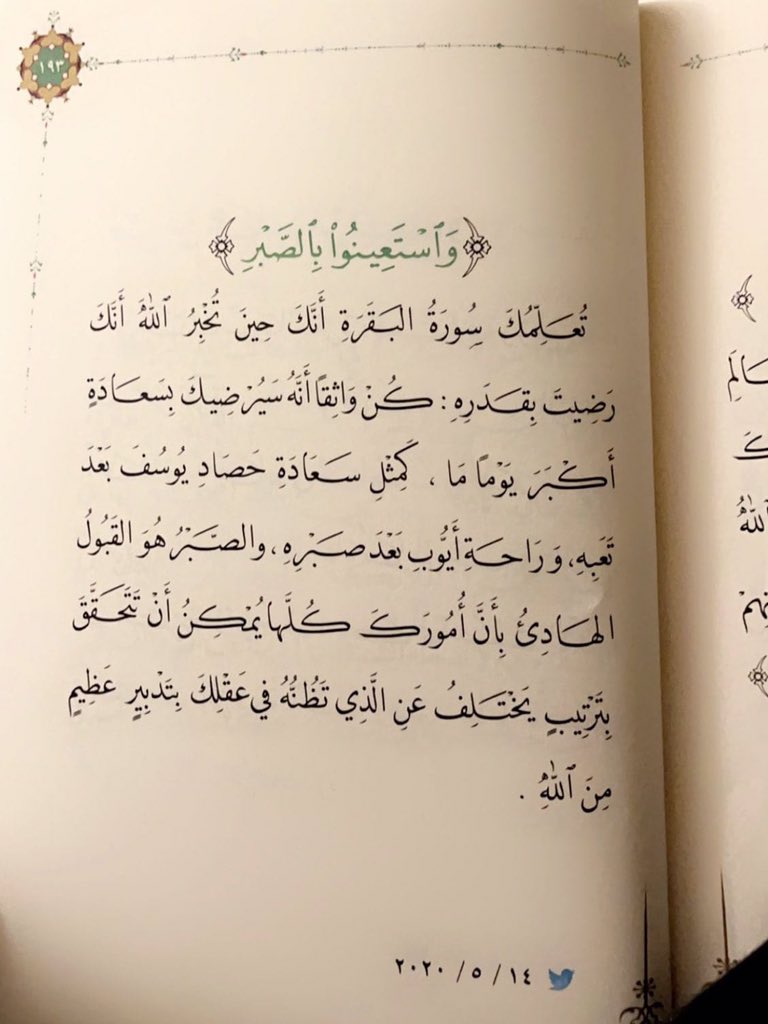 ١٩٣
وَٱسْتَعِينُوا۟ بِٱلصَّبْرِ
تُعَلِّمُكَ سُورَةُ البَقَرَةِ أَنَّكَ حِينَ تُخْبِرُ ٱللهَ أَنَّكَ
رَضِيتَ بِقَدَرِهِ : كُنْ وَاثِقاً أَنَّهُ سَيُرْضِيكَ بِسَعادَةٍ
أَكْبَرَ يَوْماً مَا ، كَمِثْلِ سَعَادَةِ حَصَادِ يُوسُفَ بَعْدَ
تَعَبِهِ، وَرَاحَةِ أَيُّوبِ بَعْدَ صَبْرِهِ ، والصَّبْرُ هُوَ القَبُولُ
الهَادِئُ بِأَنَّ أُمُورَكَ كُلَّها يُمْكِنُ أَنْ تَتَحَقَّقَ
بِتَرْتِيبٍ يَخْتَلِفُ عَنِ الَّذِي تَظُنُّهُ في عَقْلِكَ بِتَدْبِيرٍ عَظِيمٍ
مِنَ ٱللهِ .
٢٠٢٠ / ٥ / ١٤
ٱللهُ